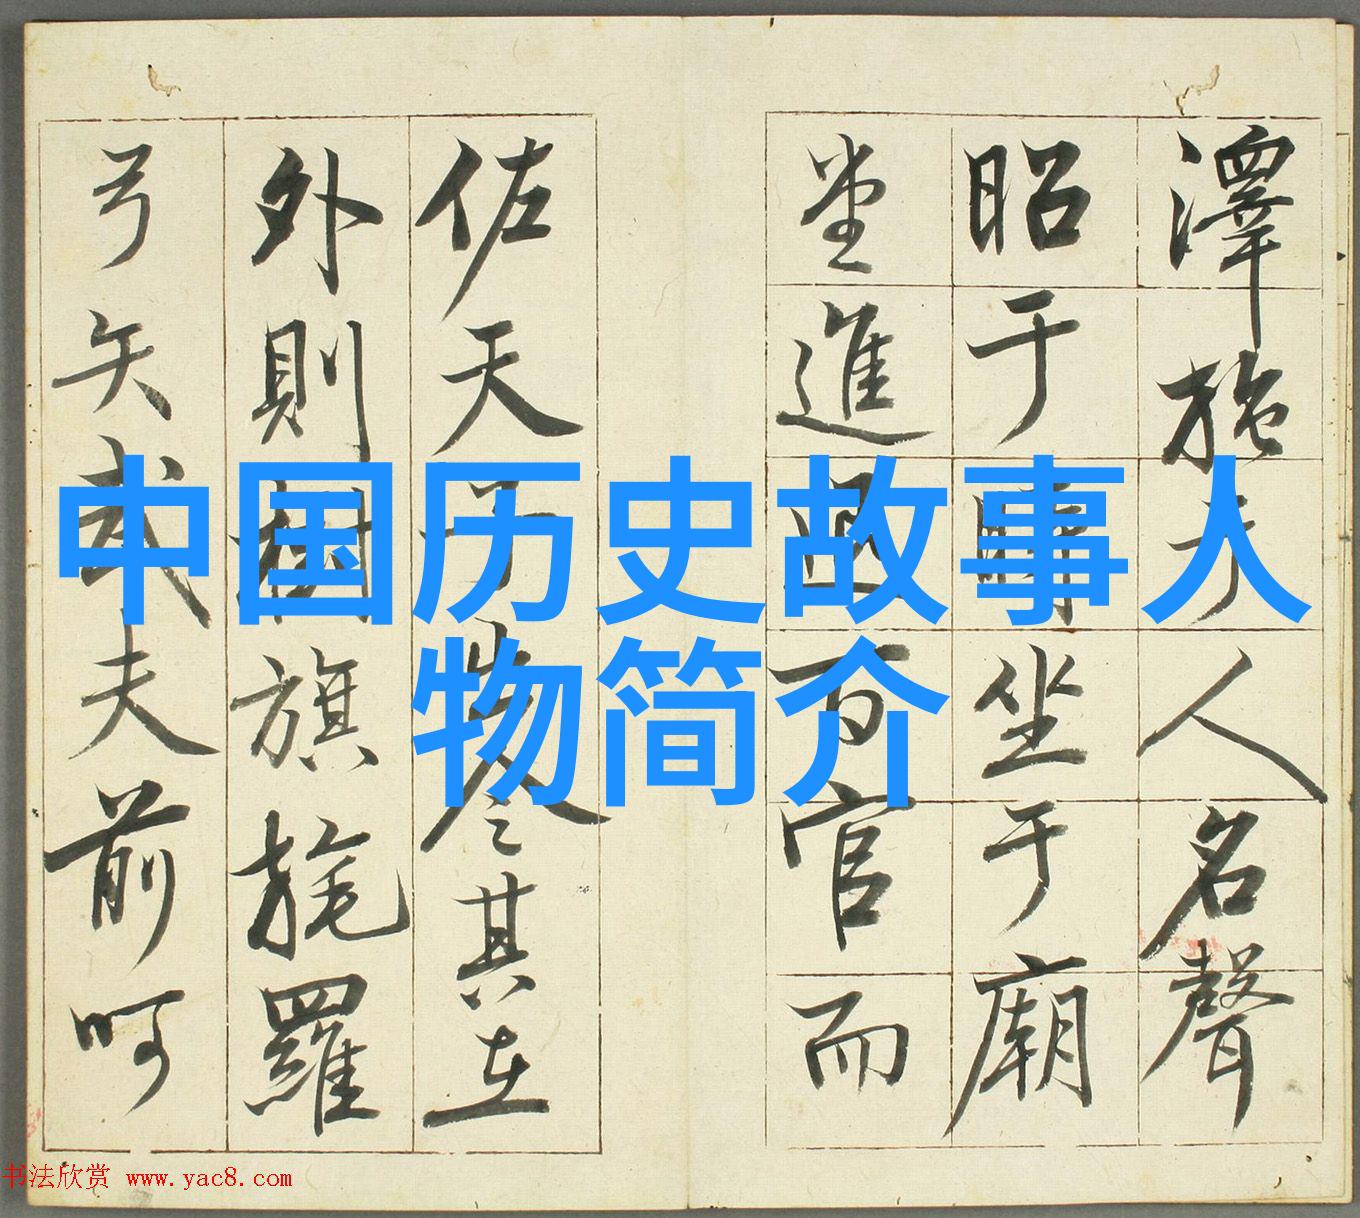 澤施于人名聲
昭于時坐于廟
堂進退百官而
佐天子出令其在
外則樹旗旄羅
弓矢武夫前呵
中国历史故事人
物简介
书法欣赏 www.yac8.com